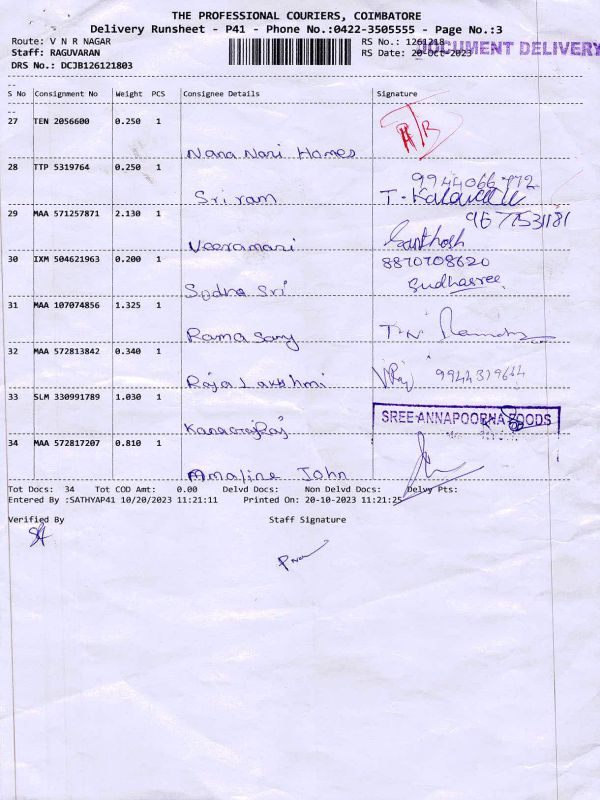 THE PROFESSIONAL COURIERS, COIMBATORE
Delivery Runsheet - P41 - Phone No.:0422-3505555 - Page No.:3
Route: V N R NAGAR RS No.: 1261218
Staff: RAGUVARAN RS Date: 20-Oct-2023 DOCUMENT DELIVERY
DRS No.: DCJB126121803
S No Consignment No Weight PCS Consignee Details Signature
27 TEN 2056600 0.250 1
Nana Nani Homes
28 TTP 5319764 0.250 1
9944066772
Sri ram
29 MAA 571257871 2.130 1
Veeramani Santhosh
30 IXM 504621963 0.200 1 8870708620
Sudha Sri Sudhasree
31 MAA 107074856 1.325 1
Rama Samy
32 MAA 572813842 0.340 1
Raja Lakshmi
33 SLM 330991789 1.030 1
SREE ANNAPOORNA FOODS
Kanagaraj
34 MAA 572817207 0.810 1
Amaline John
Tot Docs: 34 Tot COD Amt: 0.00 Delvd Docs: Non Delvd Docs: Delvy Pts:
Entered By :SATHYAP41 10/20/2023 11:21:11 Printed On: 20-10-2023 11:21:25
Verified By Staff Signature